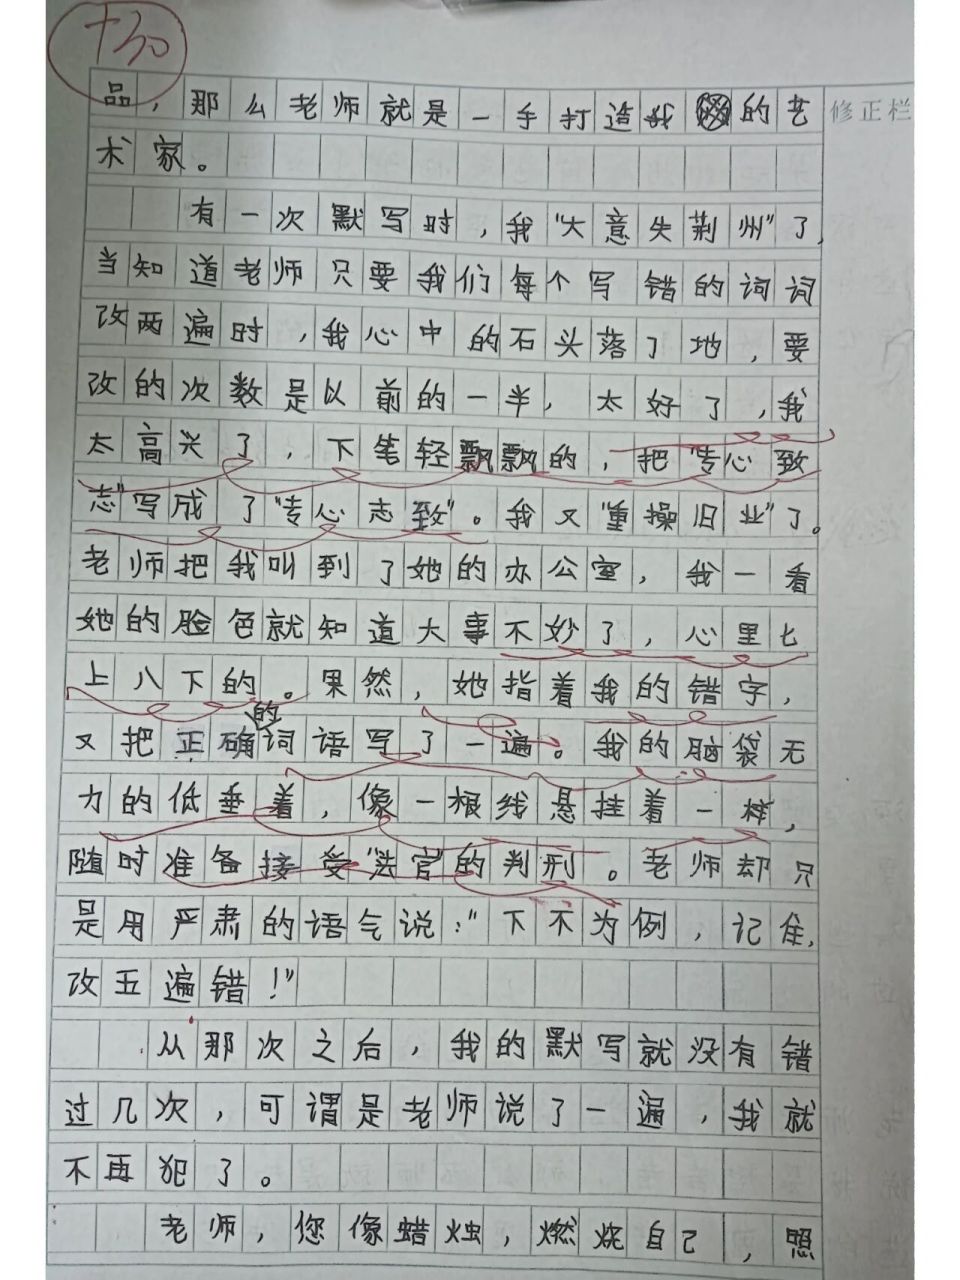 +30
品，那么老师就是一手打造我的艺
修正栏
术家。
有一次默写时，我“大意失荆州”了，
当知道老师只要我们每个写错的词词
改两遍时，我心中的石头落了地，要
改的次数是以前的一半，太好了，我
太高兴了，下笔轻飘飘的，把“专心致
志”写成了“专心志致”。我又“重操旧业”了。
老师把我叫到了她的办公室，我一看
她的脸色就知道大事不妙了，心里七
上八下的。果然，她指着我的错字，
又把正确的词语写了一遍。我的脑袋无
力的低垂着，像一根线悬挂着一样，
随时准备接受“法官”的判刑。老师却只
是用严肃的语气说：“下不为例，记住，
改五遍错！”
从那次之后，我的默写就没有错
过几次，可谓是老师说了一遍，我就
不再犯了。
老师，您像蜡烛，燃烧自己，照